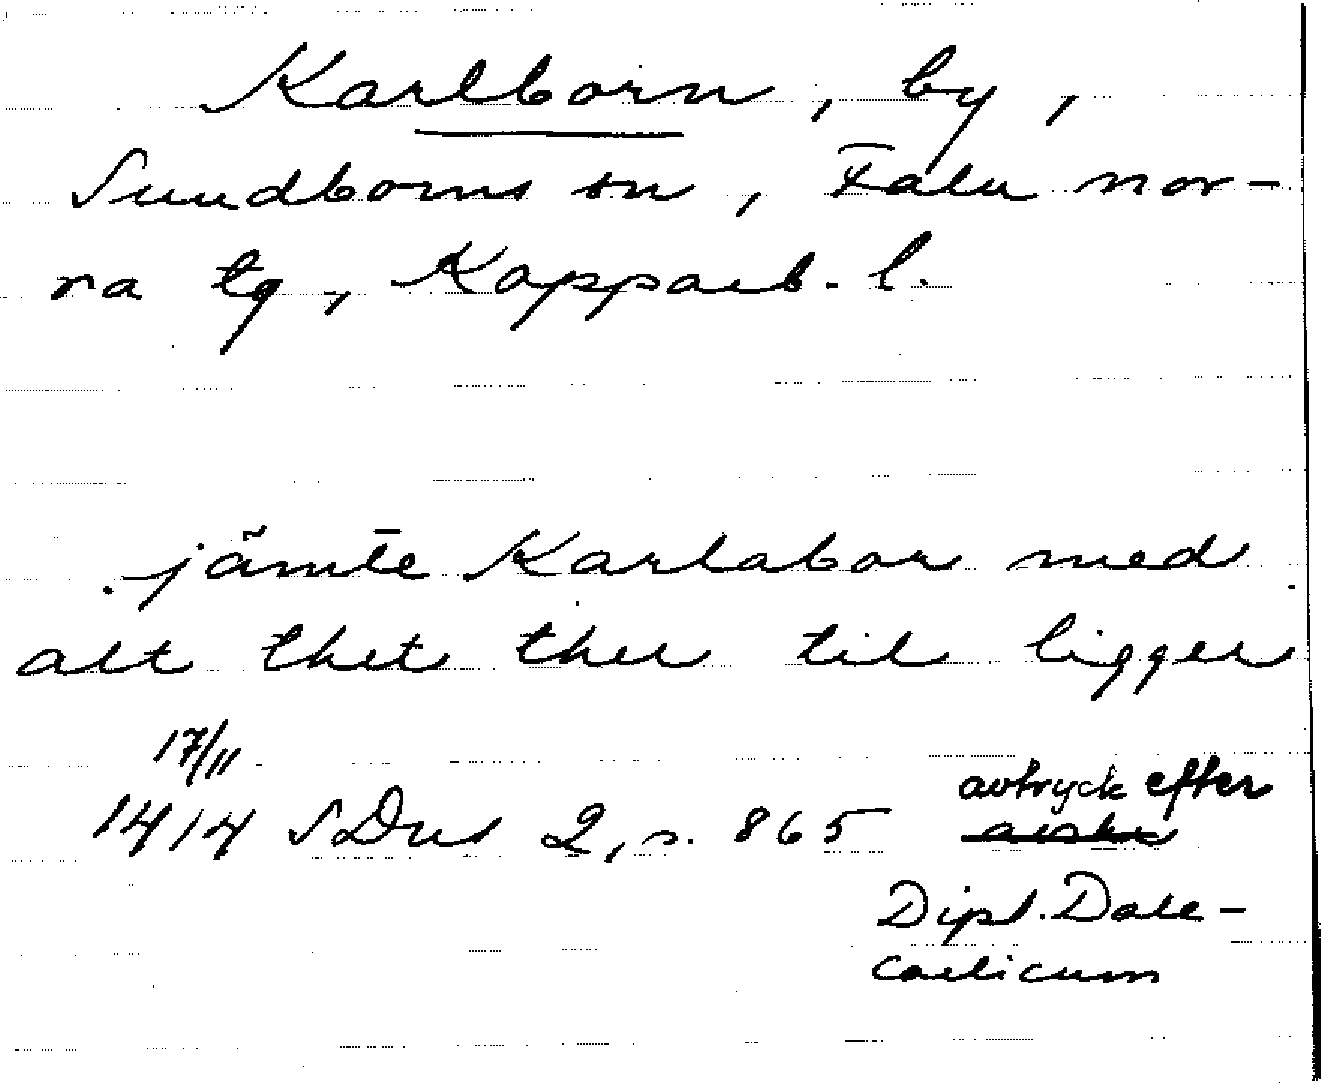 Karlborn, by,
Sundborns sn, Falu nor-
ra tg, Kopparb. l.
jämte Karlabor med
alt thet ther til ligger
17/11
1414 SDns 2, s. 865 avtryck efter
Dipl. Dale-
carlicum